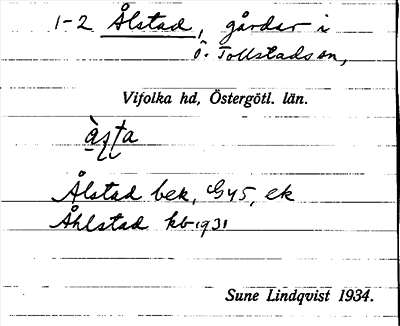 1-2 Ålstad, gårdar i
Ö. Tollstads sn,
Vifolka hd, Östergötl. län.
Ålstad bek, G45, ek
Åhlstad kb 1931
Sune Lindqvist 1934.